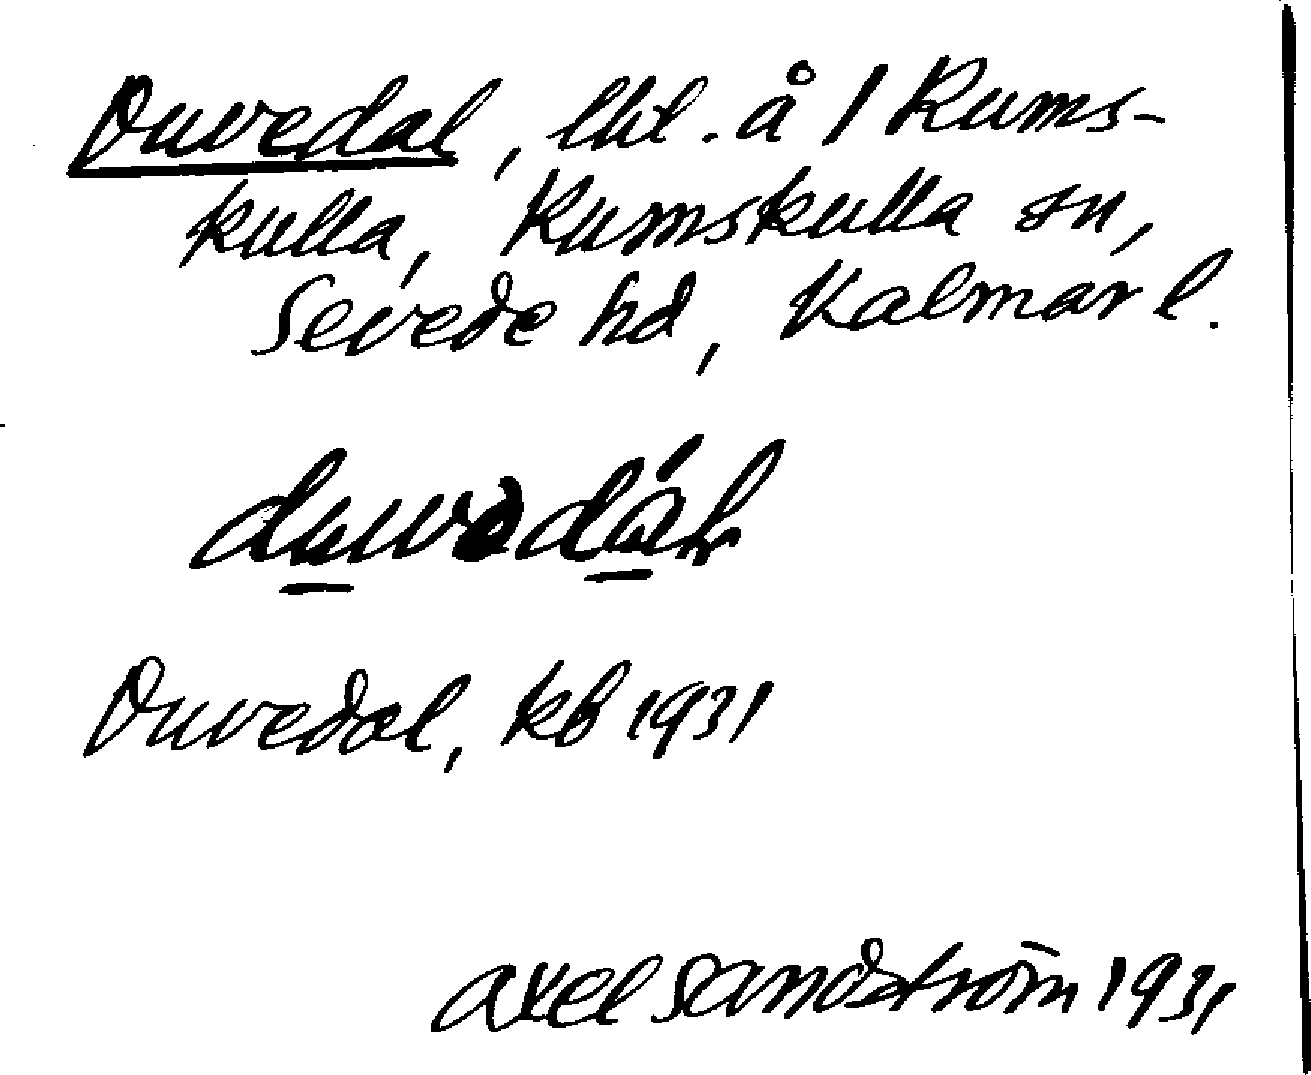 Duvedal, lht. å 1 Rums-
kulla, Rumskulla sn,
Sevede hd, Kalmar l.
Duvedal, kb 1931
Axel Sandström 1931